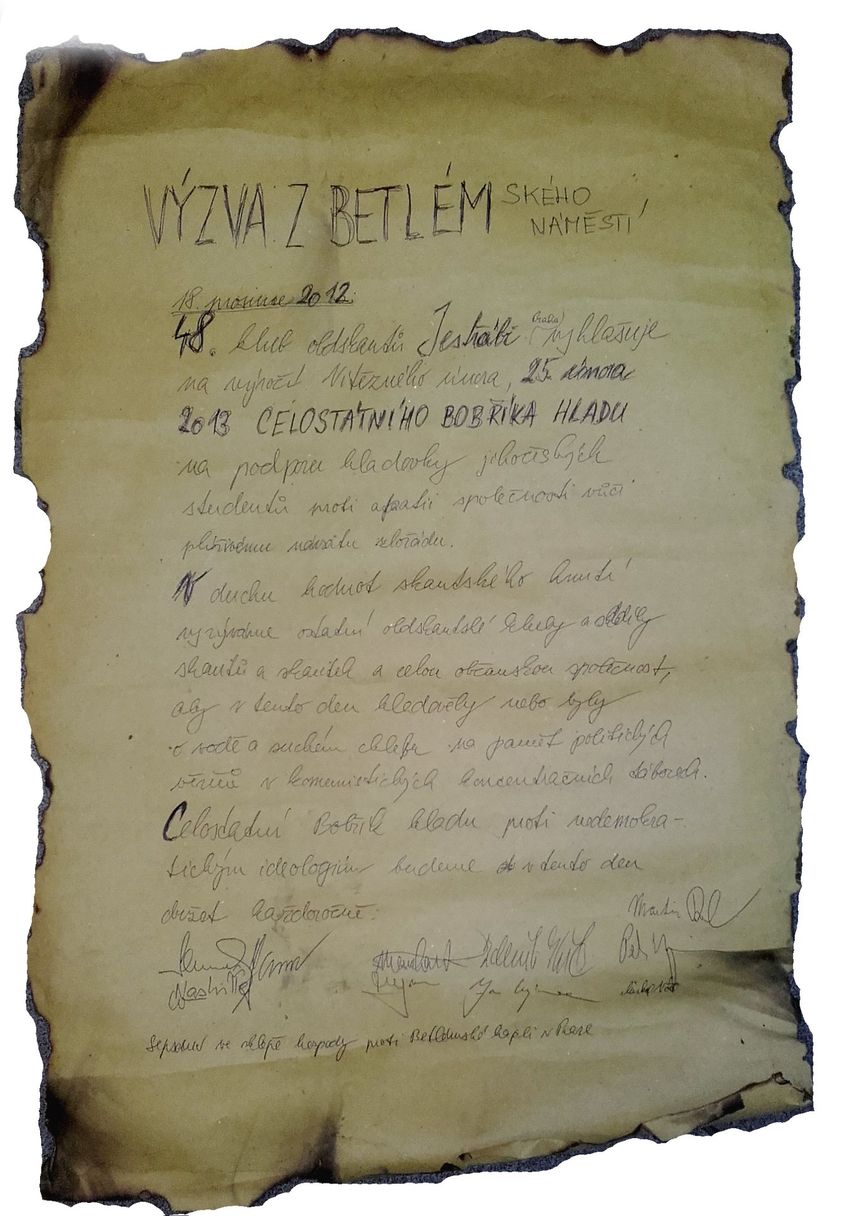 VÝZVA Z BETLÉMSKÉHO
NÁMĚSTÍ
18. prosince 2012
48. klub oldskautů Jestřábi (Praha) vyhlašuje
na výročí Vítězného února, 25. února
2013 CELOSTÁTNÍHO BOBŘÍKA HLADU
na podporu hladovky jihočeských
studentů proti apatii společnosti vůči
plíživému návratu zlořádu.
V duchu hodnot skautského hnutí
vyzýváme ostatní oldskautské kluby a oddíly
skautů a skautek a celou občanskou společnost,
aby v tento den hladověly nebo byly
o vodě a suchém chlebu na paměť politických
vězňů v komunistických koncentračních táborech.
Celostátní Bobřík hladu proti nedemokra-
tickým ideologiím budeme v tento den
držet každoročně.
Martin
Sepsáno ve sklepě hospody proti Betlémské kapli v Praze